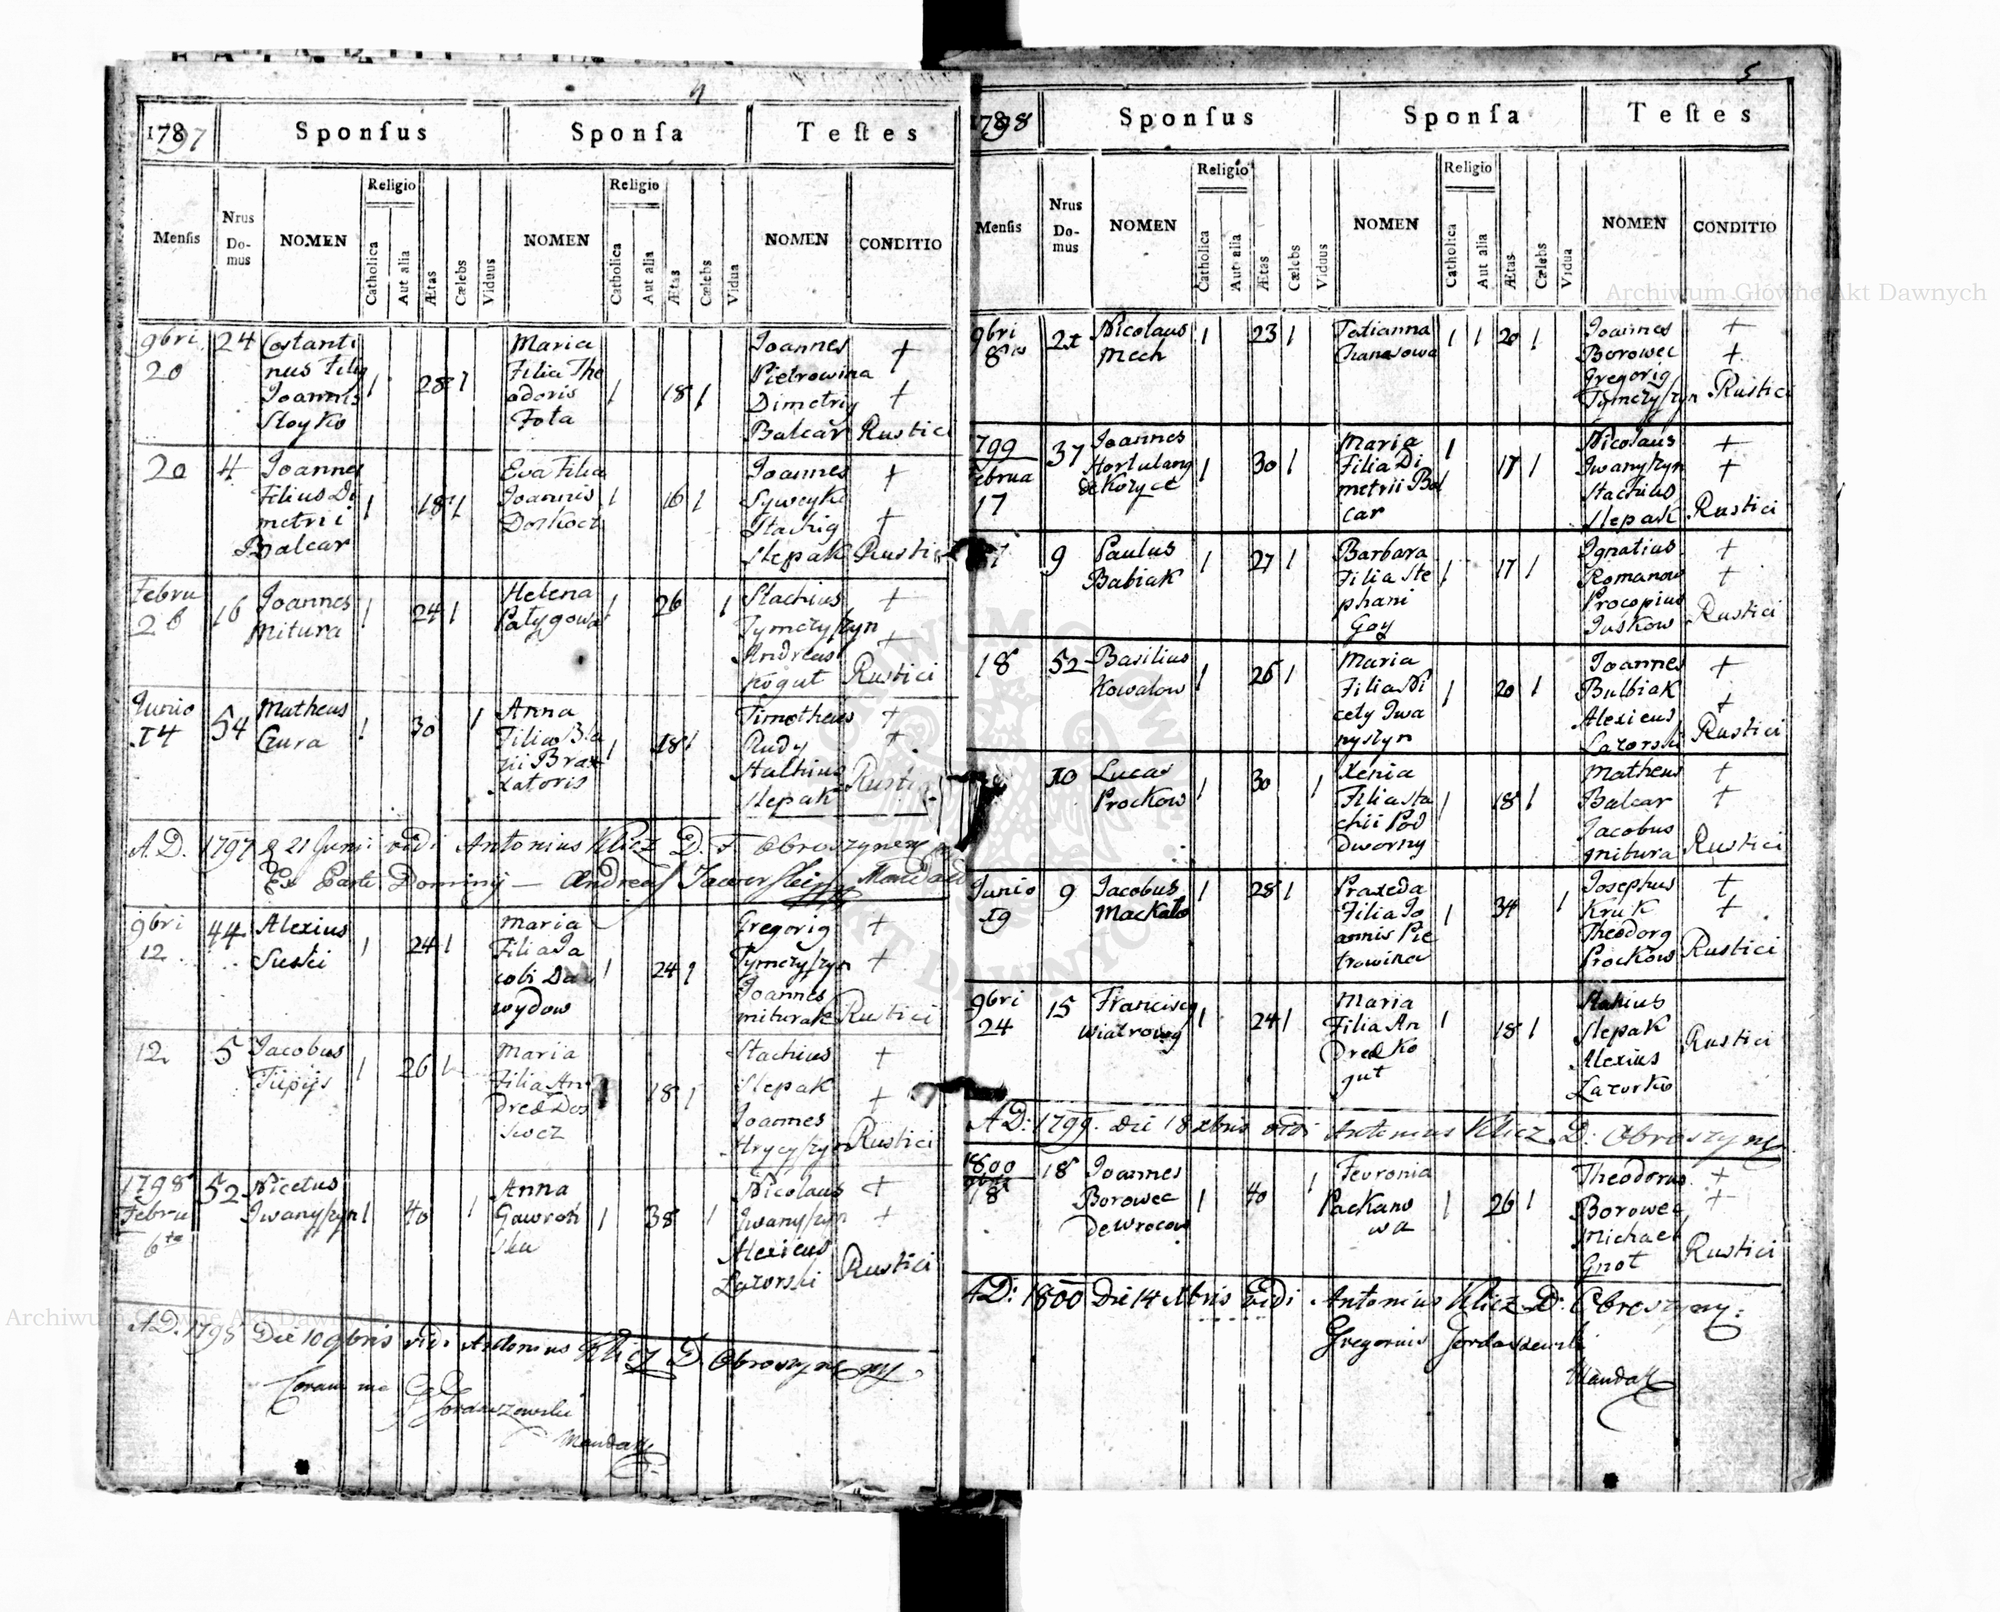 4
1797
Sponſus
Sponſa
Teſtes
Menſis
Nrus
Do-
mus
NOMEN
Religio
Catholica
Aut alia
Ætas
Cælebs
Viduus
NOMEN
Religio
Catholica
Aut alia
Ætas
Cælebs
Vidua
NOMEN
CONDITIO
9bri 24 Costanti Maria Joannes +
20 nus Filg Filia The Pietrowina
Joannis 1 28 1 odoris 1 18 1 Dimetrig +
Stoyko Fota Balcar Rustici
20 4 Joannes Eva Filia Joannes +
Filius Di 1 18 1 Joannis 1 16 1 Syweyko
metrii Doskocz Stachig +
Balcar Slepak Rustici
Febru 16 Joannes 1 24 1 Helena 1 26 1 Stachius +
26 Mitura Patygowa Tymczyszyn +
Andreas
Kogut Rustici
Junio 54 Matheus 1 30 1 Anna Timotheus +
14 Czura Filia Bla 1 18 1 Rudy +
zii Brax Stachius
latoris Slepak Rustici
A.D. 1797 d 21 Junii vidi Antonius Klicz D. F. Obroszynen
Ex Parte Dominij — Andreas Mandat
9bri 44 Alexius 1 24 1 Maria Gregorig +
12 Suski Filia Ja 1 24 1 Tymczyszyn +
cobi Da Joannes
wydow Miturak Rustici
12 5 Jacobus 1 26 1 Maria Stachius +
Filia An 1 18 1 Slepak +
dreæ Dos Joannes
Hrycyszyn Rustici
1798 52 Nicetus Anna Nicolaus +
Febru Iwanyszyn 1 40 1 Gawroń 1 38 1 Iwanyszyn +
6ta ska Alexius
Lazorski Rustici
A.D. 1798 Die 10 9bris vidi Antonius Klicz D. Obroszynen
Coram me G Jordaszewski
Mandatt
5
1798
Sponſus
Sponſa
Teſtes
Menſis
Nrus
Do-
mus
NOMEN
Religio
Catholica
Aut alia
Ætas
Cælebs
Viduus
NOMEN
Religio
Catholica
Aut alia
Ætas
Cælebs
Vidua
NOMEN
CONDITIO
9bri 21 Nicolaus 1 23 1 Tatianna 1 1 20 1 Joannes +
8 Mech Borowec +
Gregorig
Tymczyszyn Rustici
799 37 Joannes Maria 1 Nicolaus +
Februa Hortulang 1 30 1 Filia Di 17 1 Iwanyszyn +
17 de Kozyce metrii Bal Stachius
car Slepak Rustici
9 Paulus 1 27 1 Barbara Ignatius +
Babiak Filia Ste 1 17 1 Romanow +
phani Procopius
Goy Juskow Rustici
18 52 Basilius 1 26 1 Maria Joannes +
Kowalow Filia Ni 1 20 1 Bulbiak +
cety Iwa Alexieus
nyszyn Lazorski Rustici
10 Lucas 1 30 1 Xenia Matheus +
Prockow Filia Sta 1 18 1 Balcar +
chii Pod Jacobus
Dworny Mitura Rustici
Junio 9 Jacobus 1 28 1 Praxeda Josephus +
19 Mackalo Filia Jo 1 34 1 Kruk +
annis Pie Theodorg
trowina Prockow Rustici
9bri 15 Franciscg Maria Stahius
24 Wiatrowg 1 24 1 Filia An 1 18 1 Slepak
dreæ Ko Alexius Rustici
gut Lazorko
AD: 1799. Die 18 xbris vidi Antonius Klicz D: Obroszynen
1800 18 Joannes 1 Fevronia Theodorus +
9bris 18 Borowec 1 40 Packano 1 26 1 Borowec +
de Wrocow wa Michael
Gnot Rustici
AD: 1800 Die 14 Xbris Vidi Antonius Klicz D: Obroszyny:
Gregorius Jordaszewski
Mandatt
Archiwum Główne Akt Dawnych
Archiwum Główne Akt Dawnych
ARCHIWUM GŁÓWNE AKT DAWNYCH